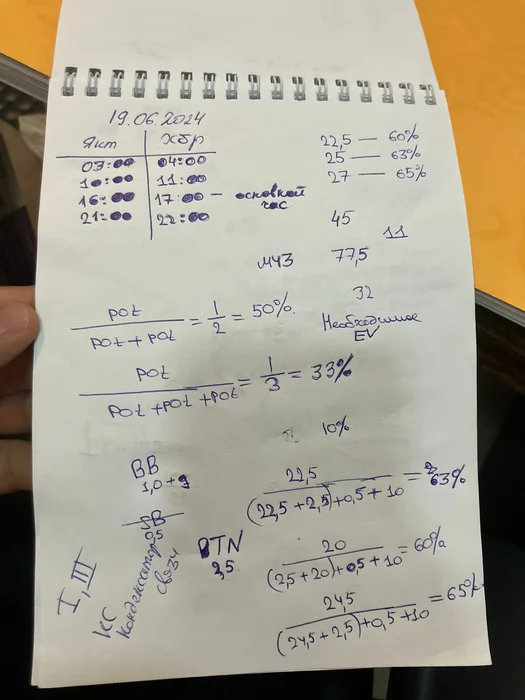 19.06.2024
Якт | Хбр
03:00 | 04:00
10:00 | 11:00
16:00 | 17:00 — основной час
21:00 | 22:00
22,5 — 60%
25 — 63%
27 — 65%
45
11
МЧЗ 77,5
32
Необходимое
EV
pot / (pot + pot) = 1/2 = 50%.
pot / (pot + pot + pot) = 1/3 = 33%
10%
BB
1,0 + 9
SB
0,5
22,5 / ((22,5 + 2,5) + 0,5 + 10) = 63%
BTN
2,5
20 / ((2,5 + 20) + 0,5 + 10) = 60%
24,5 / ((24,5 + 2,5) + 0,5 + 10) = 65%
I, III
КС
Конденсатор
связи